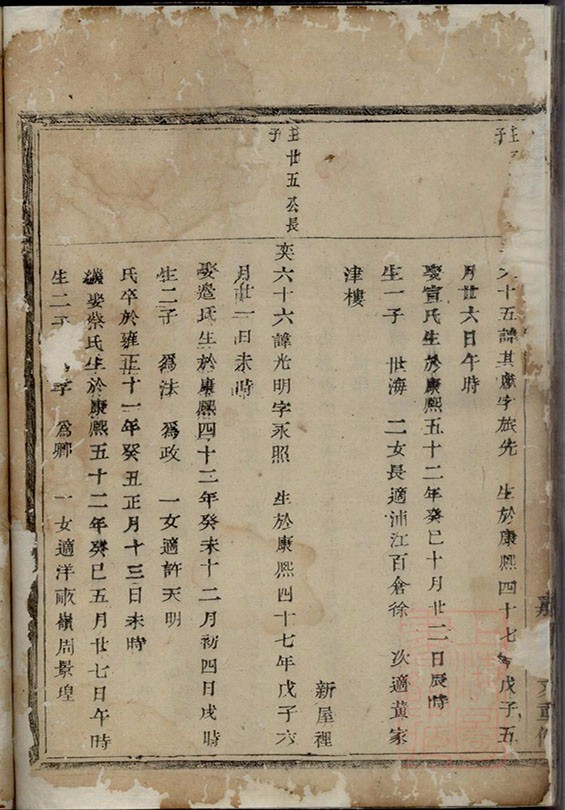 圭
子
六十五諱其獻字旅先 生於康熙四十七年戊子五
月廿六日午時
娶宣氏生於康熙五十二年癸巳十月廿二日辰時
生一子 世海 二女長適浦江百倉徐 次適黃家
津樓
新屋裡
圭廿五公長
子
奕六十六諱光明字永照 生於康熙四十七年戊子六
月廿一日未時
娶邊氏生於康熙四十三年癸未十二月初四日戌時
生二子 為法 為政 一女適許天明
氏卒於雍正十一年癸丑正月十三日未時
繼娶蔡氏生於康熙五十二年癸巳五月廿七日午時
生二子 為卿 一女適洋畈嶺周景煌